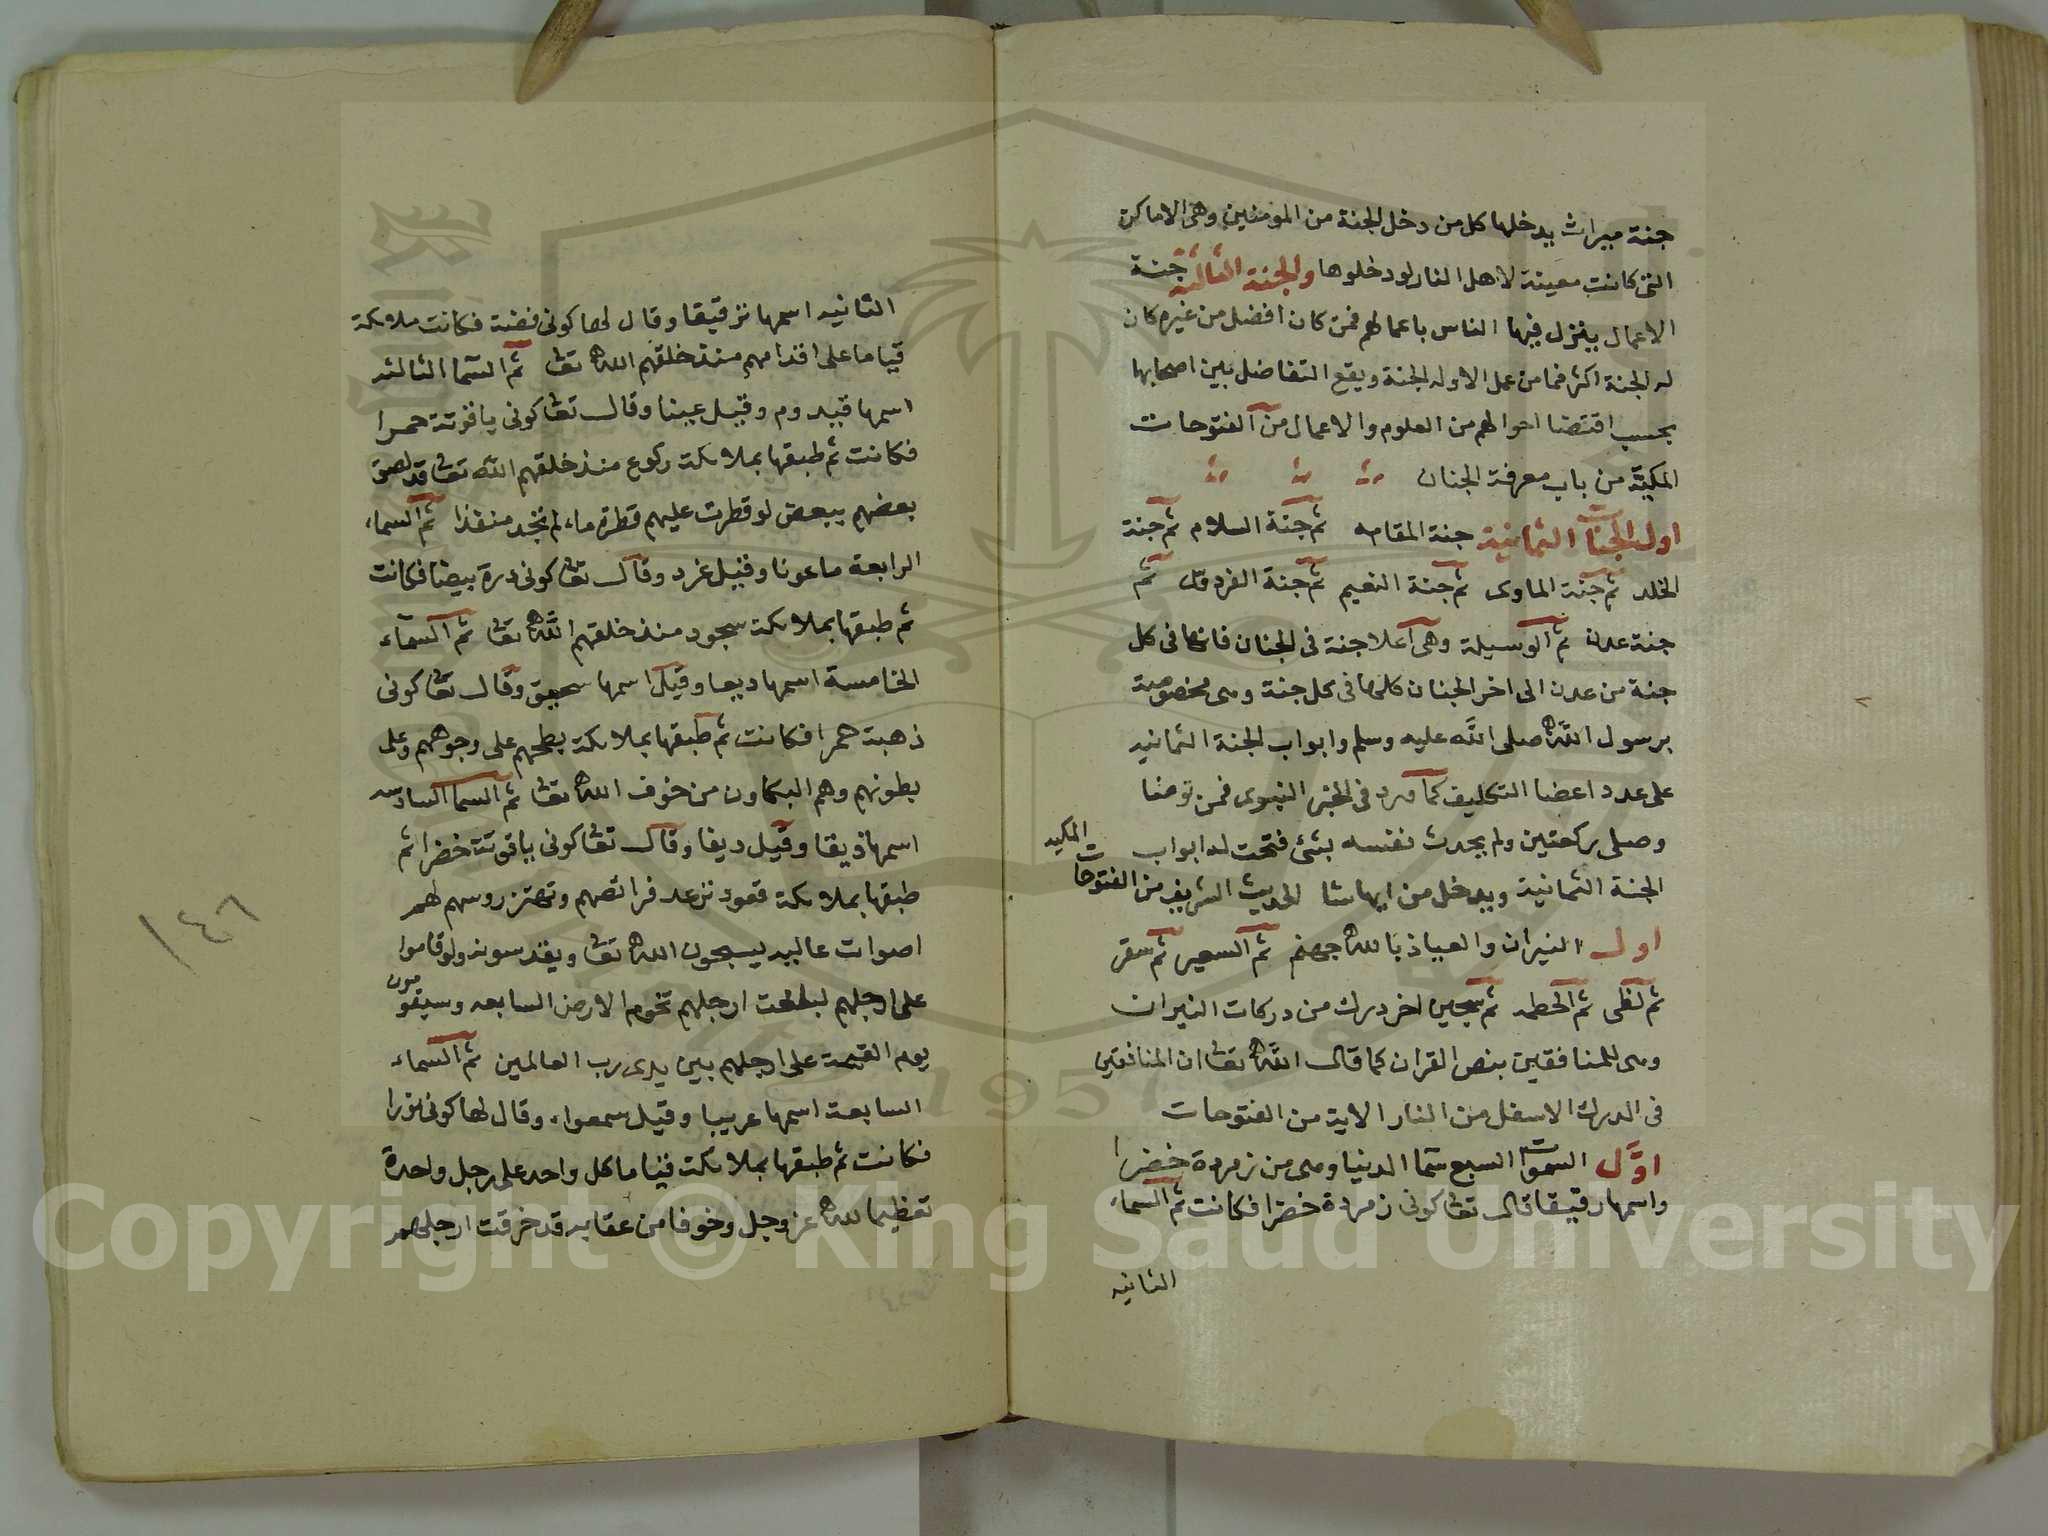 جنة ميراث يدخلها كل من دخل الجنة من المومنين وهى الاماكن
التى كانت معينة لاهل النار لو دخلوها والجنة الثالثة جنة
الاعمال ينزل فيها الناس باعمالهم فمن كان افضل من غيره كان
له الجنة اكثر فما من عمل الاوله الجنة ويقع التفاضل بين اصحابها
بحسب اقتضا احوالهم من العلوم والاعمال من الفتوحات
المكية من باب معرفة الجنان
اول الجنات الثمانية جنة المقامه ثم جنة السلام ثم جنة
الخلد ثم جنة الماوى ثم جنة النعيم ثم جنة الفردوس ثم
جنة عدن ثم الوسيلة وهى اعلا جنة فى الجنان فانها فى كل
جنة من عدن الى اخر الجنان فى كل جنة وهى مخصوصة
برسول الله صلى الله عليه وسلم وابواب الجنة الثمانيه
على عدد اعضا التكليف كما ورد فى الخبر النبوى فمن توضا
وصلى ركعتين ولم يحدث نفسه بشئ فتحت له ابواب
الجنة الثمانية ويدخل من ايها شا الحديث الشريف من الفتوحات
المكيه
اول النيران والعياذ بالله جهنم ثم السعير ثم سقر
ثم لظى ثم الحطمه ثم سجين اخر درك من دركات النيران
وهى للمنافقين بنص القران كما قال الله تعا ان المنافقين
فى الدرك الاسفل من النار الاية من الفتوحات
اول السموات السبع سما الدنيا وهى من زمردة خضرا
واسمها رقيقا قال تعا كونى زمردة خضرا فكانت ثم السماء
الثانيه
الثانيه اسمها نزقيقا وقال لها كونى فضة فكانت ملائكة
قياما على اقدامهم منذ خلقهم الله تعا ثم السما الثالثه
اسمها قيدوم وقيل عينا وقال تعا كونى ياقوتة حمرا
فكانت ثم طبقها بملائكة ركوع منذ خلقهم الله تعا قد لصق
بعضهم ببعض لو قطرت عليهم قطرة ماء لم تجد منفذا ثم السماء
الرابعة ماعونا وقيل غرد وقال تعا كونى درة بيضا فكانت
ثم طبقها بملائكة سجود منذ خلقهم الله تعا ثم السماء
الخامسة اسمها ديعا وقيل اسمها سحيق وقال تعا كونى
ذهبة حمرا فكانت ثم طبقها بملائكة بطحهم على وجوههم وعلى
بطونهم وهم البكاون من خوف الله تعا ثم السما السادسه
اسمها ذيقا وقيل ديفا وقال تعا كونى ياقوتة خضرا ثم
طبقها بملائكة قعود ترعد فرائصهم وتهتز روسهم لهم
اصوات عاليه يسبحون الله تعا ويقدسونه ولو قاموا
على ارجلهم ارجلهم تخوم الارض السابعه وسيقومون
يوم القيمة على ارجلهم بين يدى رب العالمين ثم السماء
السابعة اسمها عريبا وقيل سمعواء وقال لها كونى نورا
فكانت ثم طبقها بملائكة قياما كل واحد على رجل واحدة
تعظيما لله عز وجل وخوفا من عقابه قد خرقت ارجلهم
١٤٦
1957
Copyright © King Saud University